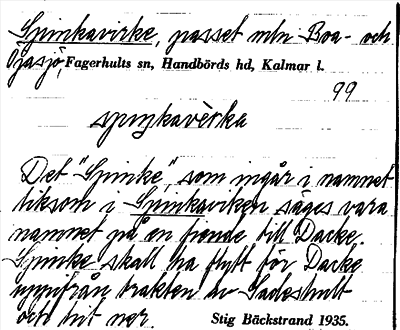 Spinkavirke, passet mln Boa- och
Öjasjö, Fagerhults sn, Handbörds hd, Kalmar l.
99
spiŋkavèrka
Det "Spinke", som ingår i namnet
liksom i Spinkaviken säges vara
namnet på en fiende till Dacke.
Spinke skall ha flytt för Dacke
uppifrån trakten av Sadeshult
och hit ner.
Stig Bäckstrand 1935.